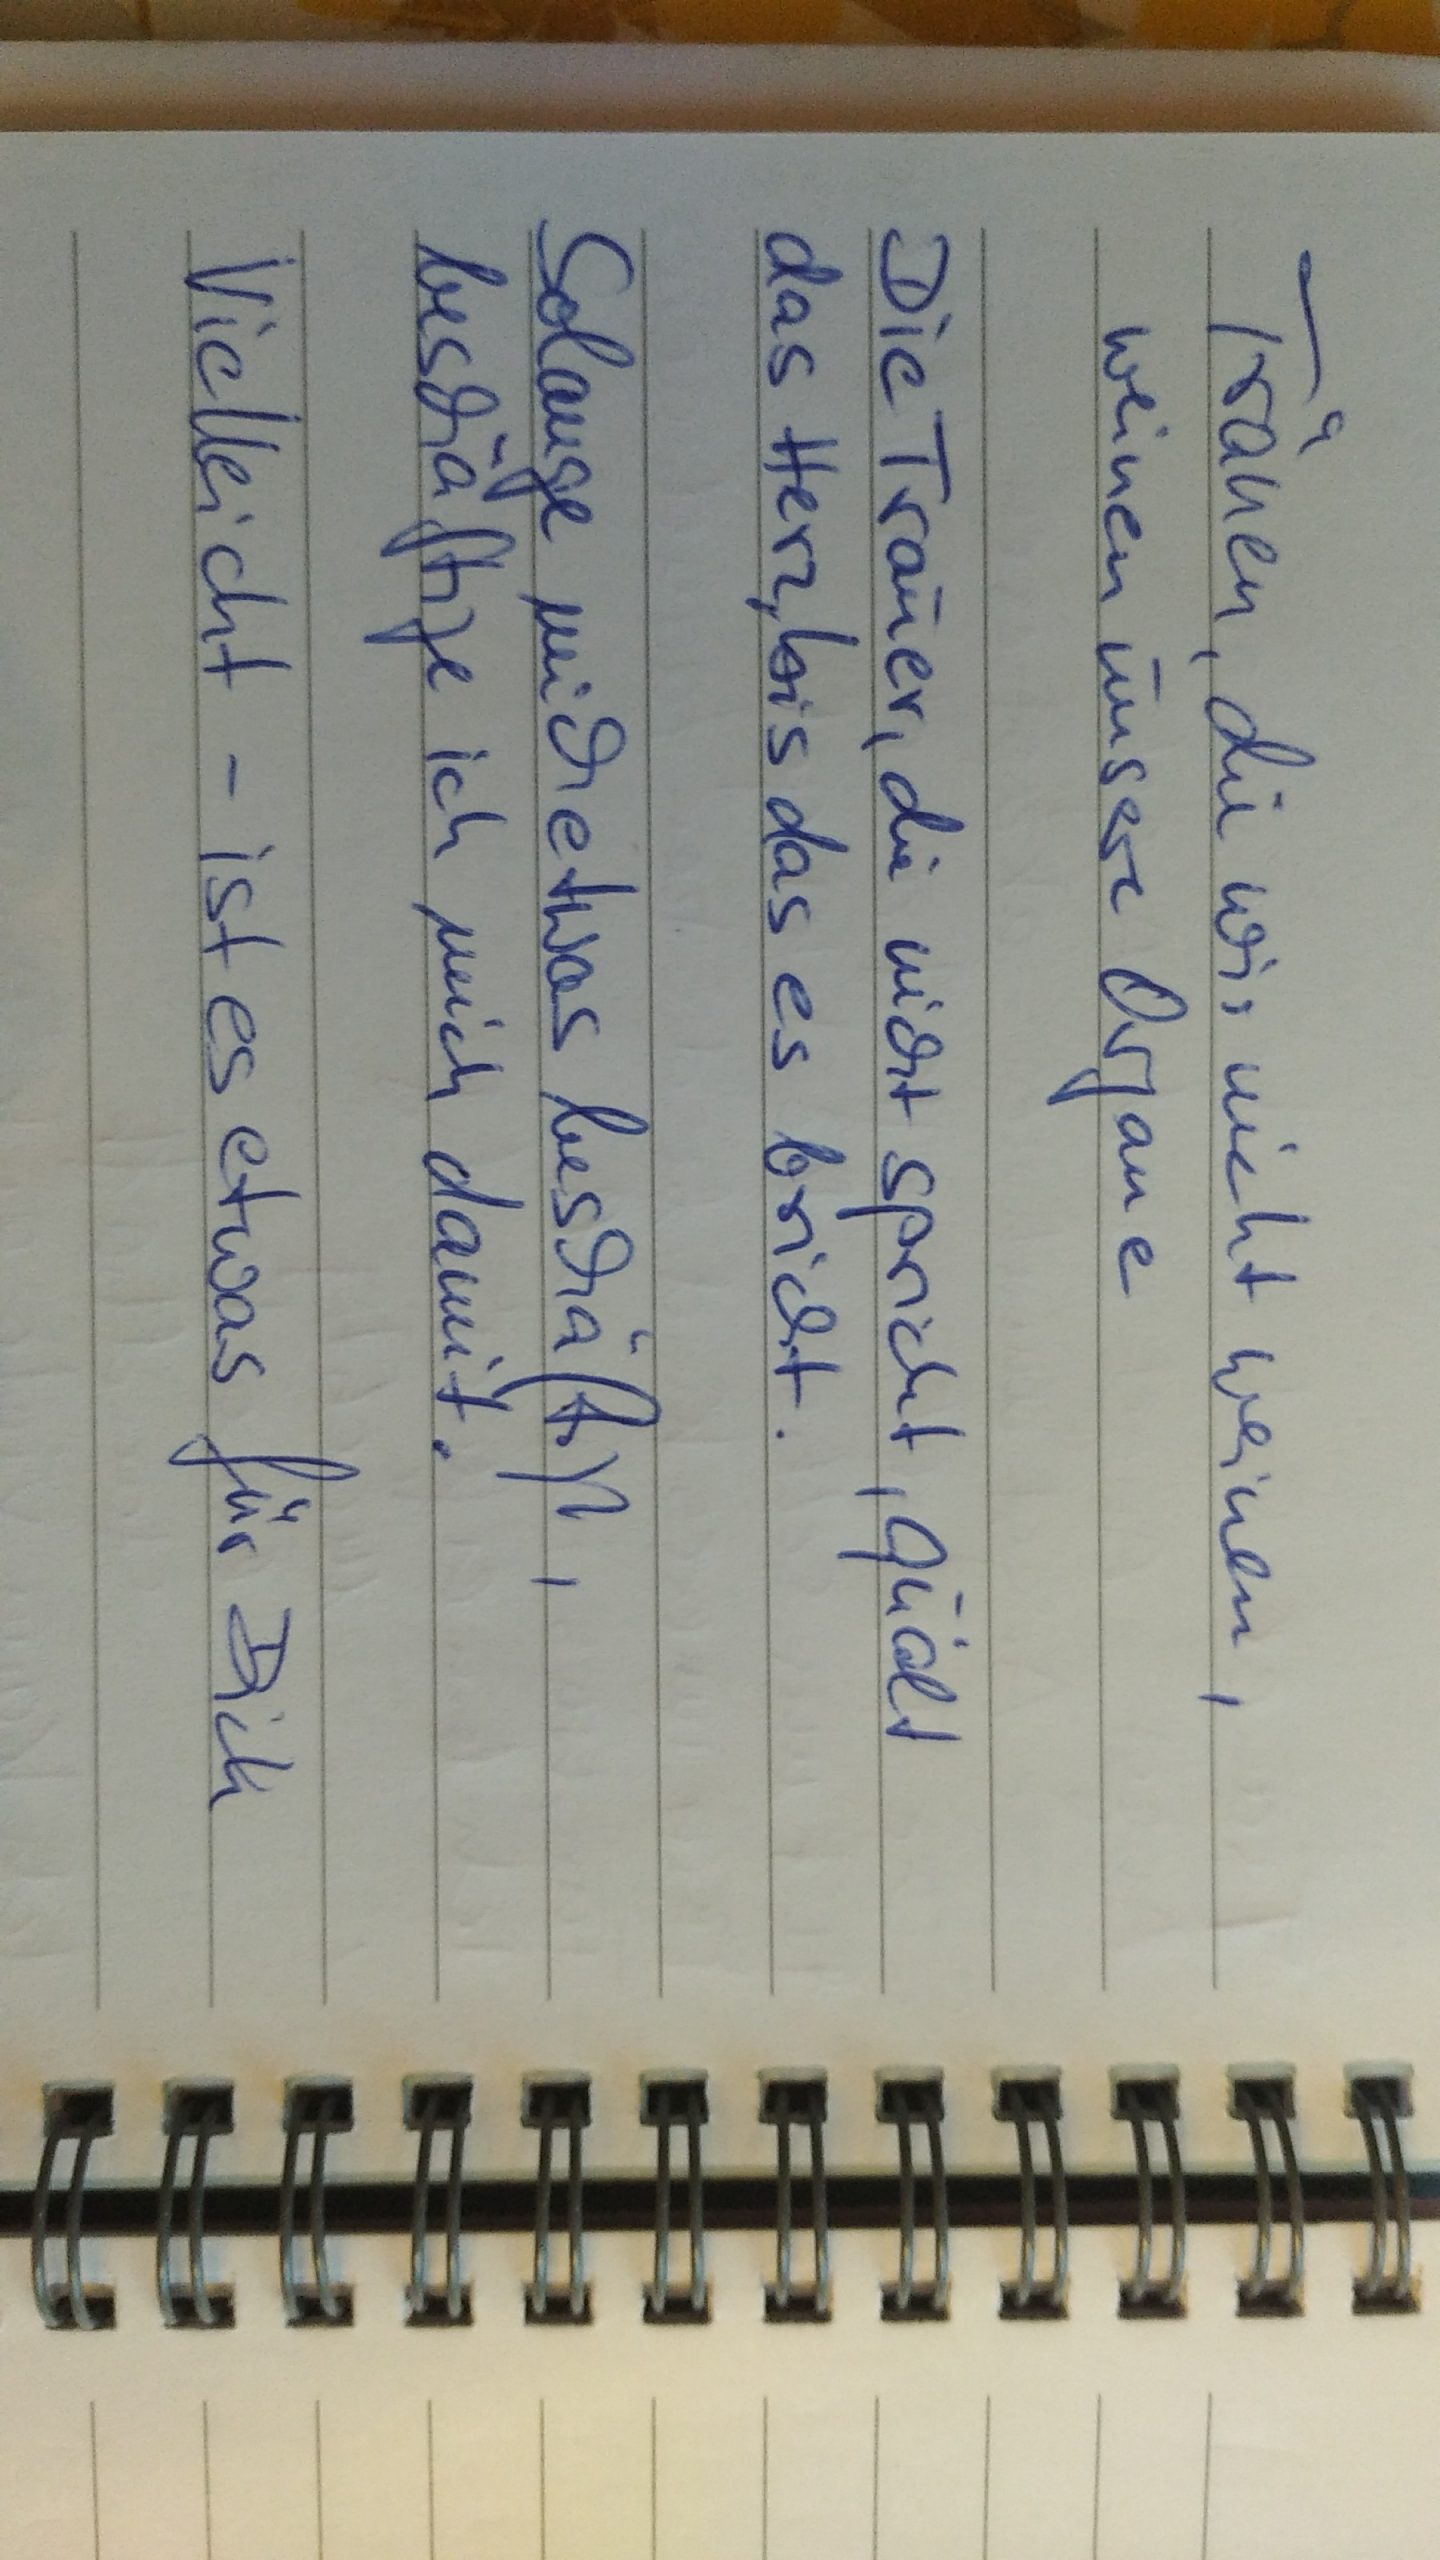 Tränen, die wir nicht weinen,
weinen unsere Organe
Die Trauer, die nicht spricht, quält
das Herz, bis das es bricht.
Solange mich etwas beschäftigt,
beschäftige ich mich damit.
Vielleicht - ist es etwas für Dich